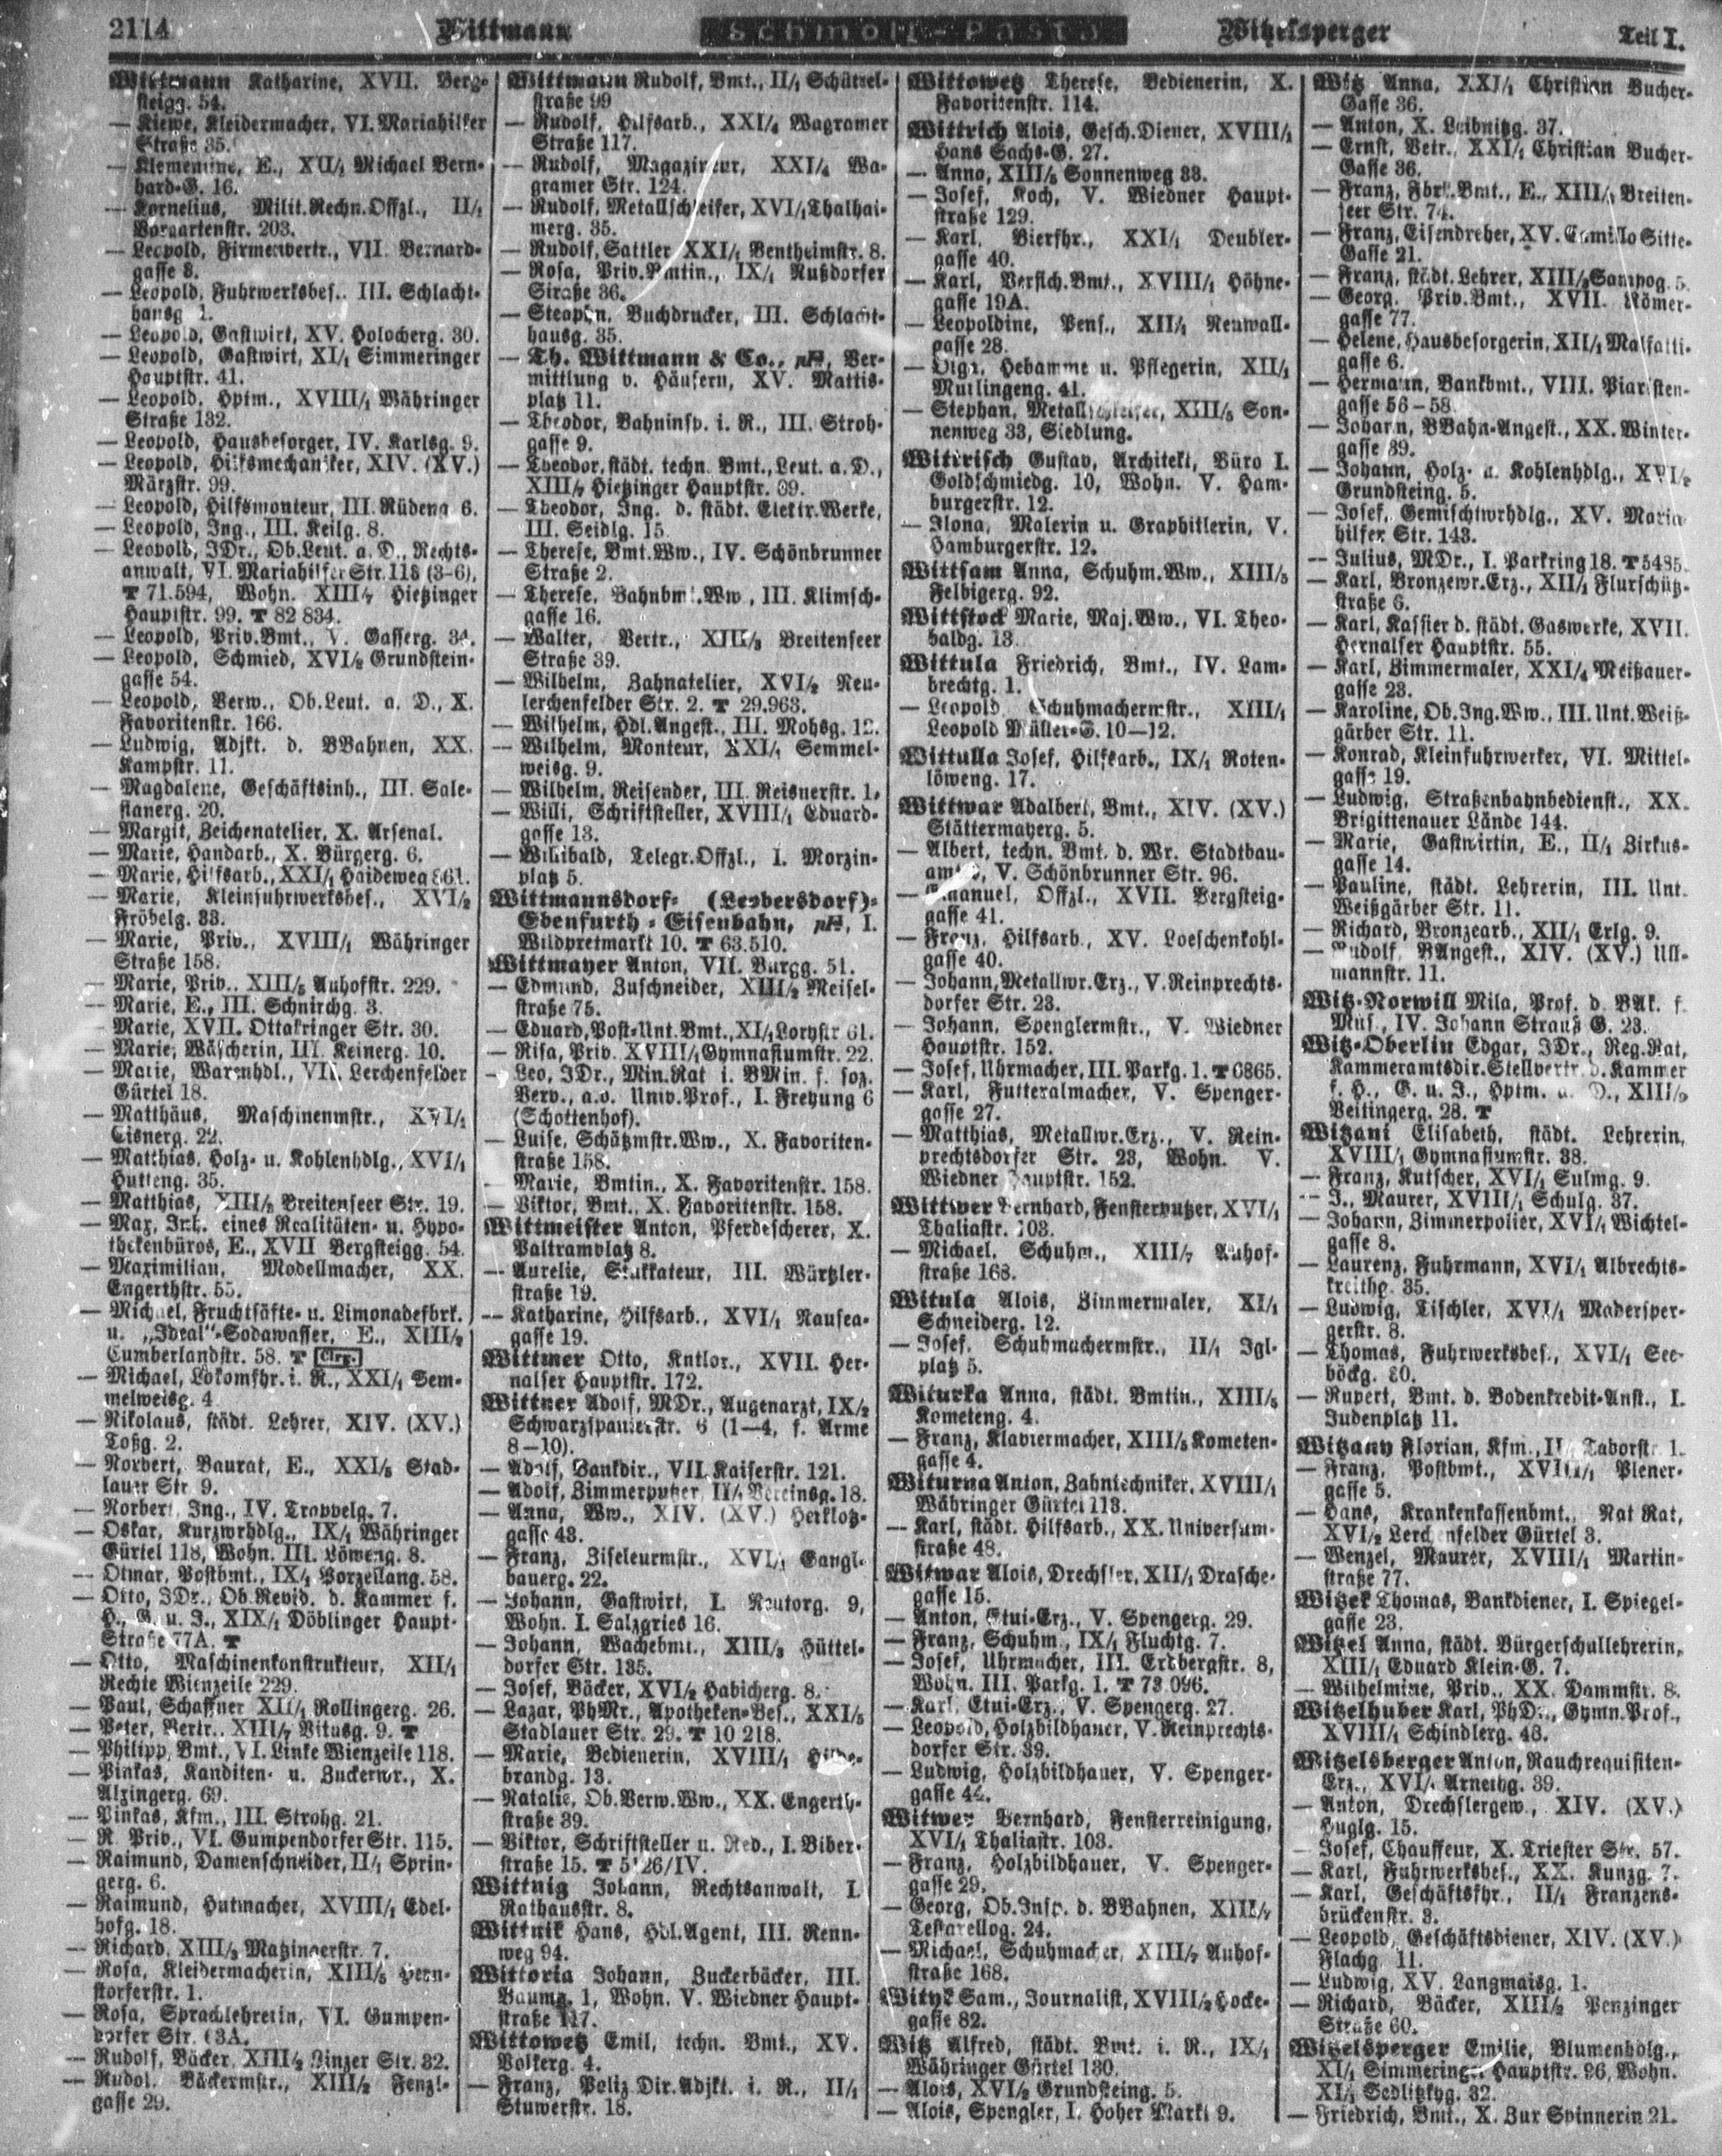 2114 Wittmann Schmoll-Pasta Witzelsperger Teil I.
Wittmann Katharine, XVII. Berg-
steigg. 54.
— Kiewe, Kleidermacher, VI. Mariahilfer
Straße 35.
— Klementine, E., XII/1 Michael Bern-
hard-G. 16.
— Kornelius, Milit.Rechn.Offzl., II/1
Vorgartenstr. 203.
— Leopold, Firmenvertr., VII. Bernard-
gasse 8.
— Leopold, Fuhrwerksbes., III. Schlacht-
hausg. 1.
— Leopold, Gastwirt, XV. Holocherg. 30.
— Leopold, Gastwirt, XI/1 Simmeringer
Hauptstr. 41.
— Leopold, Hptm., XVIII/1 Währinger
Straße 132.
— Leopold, Hausbesorger, IV. Karlsg. 9.
— Leopold, Hilfsmechaniker, XIV. (XV.)
Märzstr. 99.
— Leopold, Hilfsmonteur, III. Rüdeng. 6.
— Leopold, Ing., III. Keilg. 8.
— Leopold, JDr., Ob.Leut. a. D., Rechts-
anwalt, VI. Mariahilfer Str. 118 (3-6),
T 71.594, Wohn. XIII/7 Hietzinger
Hauptstr. 99. T 82 834.
— Leopold, Priv.Bmt., V. Gasserg. 34.
— Leopold, Schmied, XVI/2 Grundstein-
gasse 54.
— Leopold, Verw., Ob.Leut. a. D., X.
Favoritenstr. 166.
— Ludwig, Adjkt. d. BBahnen, XX.
Kampstr. 11.
— Magdalene, Geschäftsinh., III. Sale-
sianerg. 20.
— Margit, Zeichenatelier, X. Arsenal.
— Marie, Handarb., X. Bürgerg. 6.
— Marie, Hilfsarb., XXI/1 Haideweg 861.
— Marie, Kleinfuhrwerksbes., XVI/2
Fröbelg. 33.
— Marie, Priv., XVIII/1 Währinger
Straße 158.
— Marie, Priv., XIII/5 Auhofstr. 229.
— Marie, E., III. Schnirchg. 3.
— Marie, XVII. Ottakringer Str. 30.
— Marie, Wäscherin, III. Keinerg. 10.
— Marie, Warenhdl., VII. Lerchenfelder
Gürtel 18.
— Matthäus, Maschinenmstr., XVI/1
Eisnerg. 22.
— Matthias, Holz- u. Kohlenhdlg., XVI/1
Hutteng. 35.
— Matthias, XIII/2 Breitenseer Str. 19.
— Max, Inh. eines Realitäten- u. Hypo-
thekenbüros, E., XVII Bergsteigg. 54.
— Maximilian, Modellmacher, XX.
Engerthstr. 55.
— Michael, Fruchtsäfte- u. Limonadefbrk.
u. „Ideal"-Sodawasser, E., XIII/2
Cumberlandstr. 58. T Clrg.
— Michael, Lokomfhr. i. R., XXI/1 Sem-
melweisg. 4
— Nikolaus, städt. Lehrer, XIV. (XV.)
Toßg. 2.
— Norbert, Baurat, E., XXI/5 Stad-
lauer Str. 9.
— Norbert, Ing., IV. Trappelg. 7.
— Oskar, Kurzwrhdlg., IX/1 Währinger
Gürtel 118, Wohn. III. Löweng. 8.
— Otmar, Postbmt., IX/1 Porzellang. 58.
— Otto, JDr., Ob.Revid. d. Kammer f.
H., G. u. J., XIX/1 Döblinger Haupt-
Straße 77A. T
— Otto, Maschinenkonstrukteur, XII/1
Rechte Wienzeile 229.
— Paul, Schaffner XII/1 Rollingerg. 26.
— Peter, Vertr., XIII/7 Vitusg. 9. T
— Philipp, Bmt., VI. Linke Wienzeile 118.
— Pinkas, Kanditen- u. Zuckerwr., X.
Alxingerg. 69.
— Pinkas, Kfm., III. Strohg. 21.
— R. Priv., VI. Gumpendorfer Str. 115.
— Raimund, Damenschneider, II/1 Sprin-
gerg. 6.
— Raimund, Hutmacher, XVIII/1 Edel-
hofg. 18.
— Richard, XIII/3 Matzingerstr. 7.
— Rosa, Kleidermacherin, XIII/5 Hern-
storferstr. 1.
— Rosa, Sprachlehrerin, VI. Gumpen-
dorfer Str. 63A.
— Rudolf, Bäcker, XIII/2 Linzer Str. 32.
— Rudol. Bäckermstr., XIII/2 Fenzl-
gasse 29.
Wittmann Rudolf, Bmt., II/1 Schüttel-
straße 99
— Rudolf, Hilfsarb., XXI/4 Wagramer
Straße 117.
— Rudolf, Magazineur, XXI/4 Wa-
gramer Str. 124.
— Rudolf, Metallschleifer, XVI/1 Thalhai-
merg. 35.
— Rudolf, Sattler, XXI/1 Bentheimstr. 8.
— Rosa, Priv.Bmtin., IX/1 Nußdorfer
Straße 36.
— Stephan, Buchdrucker, III. Schlacht-
hausg. 35.
— Th. Wittmann & Co., pH, Ver-
mittlung v. Häusern, XV. Mattis-
platz 11.
— Theodor, Bahninsp. i. R., III. Stroh-
gasse 9.
— Theodor, städt. techn. Bmt., Leut. a. D.,
XIII/7 Hietzinger Hauptstr. 39.
— Theodor, Ing. d. städt. Elektr.Werke,
III. Seidlg. 15.
— Therese, Bmt.Ww., IV. Schönbrunner
Straße 2.
— Therese, Bahnbmt.Ww., III. Klimsch-
gasse 16.
— Walter, Vertr., XIII/3 Breitenseer
Straße 39.
— Wilhelm, Zahnatelier, XVI/2 Neu-
lerchenfelder Str. 2. T 29.963.
— Wilhelm, Hdl.Angest., III. Mohsg. 12.
— Wilhelm, Monteur, XXI/1 Semmel-
weisg. 9.
— Wilhelm, Reisender, III. Reisnerstr. 1.
— Willi, Schriftsteller, XVIII/1 Eduard-
gasse 13.
— Willibald, Telegr.Offzl., I. Morzin-
platz 5.
Wittmannsdorf- (Leobersdorf)-
Ebenfurth-Eisenbahn, pH, I.
Wildpretmarkt 10. T 63.510.
Wittmayer Anton, VII. Burgg. 51.
— Edmund, Zuschneider, XIII/2 Meisel-
straße 75.
— Eduard, Post-Unt.Bmt., XI/1 Lorystr 61.
— Risa, Priv. XVIII/1 Gymnasiumstr. 22.
— Leo, JDr., Min.Rat i. BMin. f. soz.
Verv., a.o. Univ.Prof., I. Freyung 6
(Schottenhof).
— Luise, Schätzmstr.Ww., X. Favoriten-
straße 158.
— Marie, Bmtin., X. Favoritenstr. 158.
— Viktor, Bmt., X. Favoritenstr. 158.
Wittmeister Anton, Pferdescherer, X.
Paltramplatz 8.
— Aurelie, Stukkateur, III. Würtzler-
straße 19.
— Katharine, Hilfsarb., XVI/1 Nausea-
gasse 19.
Wittmer Otto, Kntlor., XVII. Her-
nalser Hauptstr. 172.
Wittner Adolf, MDr., Augenarzt, IX/2
Schwarzspanierstr. 6 (1—4, f. Arme
8—10).
— Adolf, Bankdir., VII. Kaiserstr. 121.
— Adolf, Zimmerputzer, II/1 Vereinsg. 18.
— Anna, Ww., XIV. (XV.) Herklotz-
gasse 43.
— Franz, Ziseleurmstr., XVI/1 Gangl-
bauerg. 22.
— Johann, Gastwirt, I. Neutorg. 9,
Wohn. I. Salzgries 16.
— Johann, Wachebmt., XIII/3 Hüttel-
dorfer Str. 135.
— Josef, Bäcker, XVI/2 Habicherg. 8.
— Lazar, PhMr., Apotheken-Bes., XXI/5
Stadlauer Str. 29. T 10 218.
— Marie, Bedienerin, XVIII/1 Hilde-
brandg. 13.
— Natalie, Ob.Verw.Ww., XX. Engerth-
straße 39.
— Viktor, Schriftsteller u. Red., I. Biber-
straße 15. T 5126/IV.
Wittnig Johann, Rechtsanwalt, I.
Rathausstr. 8.
Wittnik Hans, Hdl.Agent, III. Renn-
weg 94.
Wittoria Johann, Zuckerbäcker, III.
Baumg. 1, Wohn. V. Wiedner Haupt-
straße 117.
Wittowetz Emil, techn. Bmt., XV.
Volkerg. 4.
— Franz, Poliz.Dir.Adjkt. i. R., II/1
Stuwerstr. 18.
Wittowetz Therese, Bedienerin, X.
Favoritenstr. 114.
Wittrich Alois, Gesch.Diener, XVIII/1
Hans Sachs-G. 27.
— Anna, XIII/5 Sonnenweg 33.
— Josef, Koch, V. Wiedner Haupt-
straße 129.
— Karl, Bierfhr., XXI/1 Deubler-
gasse 40.
— Karl, Versich.Bmt., XVIII/1 Höhne-
gasse 19A.
— Leopoldine, Pens., XII/1 Neuwall-
gasse 28.
— Olga, Hebamme u. Pflegerin, XII/1
Murlingeng. 41.
— Stephan, Metallschleifer, XIII/5 Son-
nenweg 33, Siedlung.
Wittrisch Gustav, Architekt, Büro I.
Goldschmiedg. 10, Wohn. V. Ham-
burgerstr. 12.
— Ilona, Malerin u. Graphitlerin, V.
Hamburgerstr. 12.
Wittsam Anna, Schuhm.Ww., XIII/5
Felbigerg. 92.
Wittstock Marie, Maj.Ww., VI. Theo-
baldg. 13.
Wittula Friedrich, Bmt., IV. Lam-
brechtg. 1.
— Leopold, Schuhmachermstr., XIII/1
Leopold Müller-G. 10—12.
Wittulla Josef, Hilfsarb., IX/1 Roten-
löweng. 17.
Wittwar Adalbert, Bmt., XIV. (XV.)
Stättermayerg. 5.
— Albert, techn. Bmt. d. Wr. Stadtbau-
amtes, V. Schönbrunner Str. 96.
— Emanuel, Offzl., XVII. Bergsteig-
gasse 41.
— Franz, Hilfsarb., XV. Loeschenkohl-
gasse 40.
— Johann, Metallwr.Erz., V. Reinprechts-
dorfer Str. 23.
— Johann, Spenglermstr., V. Wiedner
Hauptstr. 152.
— Josef, Uhrmacher, III. Parkg. 1. T 0865.
— Karl, Futteralmacher, V. Spenger-
gasse 27.
— Matthias, Metallwr.Erz., V. Rein-
prechtsdorfer Str. 23, Wohn. V.
Wiedner Hauptstr. 152.
Wittwer Bernhard, Fensterputzer, XVI/1
Thaliastr. 103.
— Michael, Schuhm., XIII/7 Auhof-
straße 168.
Witula Alois, Zimmermaler, XI/1
Schneiderg. 12.
— Josef, Schuhmachermstr., II/1 Ilg-
platz 5.
Witurka Anna, städt. Bmtin., XIII/5
Kometeng. 4.
— Franz, Klaviermacher, XIII/5 Kometen-
gasse 4.
Witurna Anton, Zahntechniker, XVIII/1
Währinger Gürtel 113.
— Karl, städt. Hilfsarb., XX. Universum-
straße 48.
Witwar Alois, Drechsler, XII/1 Drasche-
gasse 15.
— Anton, Etui-Erz., V. Spengerg. 29.
— Franz, Schuhm., IX/1 Fluchtg. 7.
— Josef, Uhrmacher, III. Erdbergstr. 8,
Wohn. III. Parkg. 1. T 73.096.
— Karl, Etui-Erz., V. Spengerg. 27.
— Leopold, Holzbildhauer, V. Reinprechts-
dorfer Str. 39.
— Ludwig, Holzbildhauer, V. Spenger-
gasse 44.
Witwer Bernhard, Fensterreinigung,
XVI/1 Thaliastr. 103.
— Franz, Holzbildhauer, V. Spenger-
gasse 29.
— Georg, Ob.Insp. d. BBahnen, XIII/7
Testarellog. 24.
— Michael, Schuhmacher, XIII/7 Auhof-
straße 168.
Wityk Sam., Journalist, XVIII/2 Hocke-
gasse 82.
Witz Alfred, städt. Bmt. i. R., IX/1
Währinger Gürtel 130.
— Alois, XVI/2 Grundsteing. 5.
— Alois, Spengler, I. Hoher Markt 9.
Witz Anna, XXI/1 Christian Bucher-
Gasse 36.
— Anton, X. Leibnitzg. 37.
— Ernst, Vetr., XXI/1 Christian Bucher-
Gasse 36.
— Franz, Fbrk.Bmt., E., XIII/1 Breiten-
seer Str. 74.
— Franz, Eisendreher, XV. Camillo Sitte-
Gasse 21.
— Franz, städt. Lehrer, XIII/3 Sampog. 5.
— Georg, Priv.Bmt., XVII. Römer-
gasse 77.
— Helene, Hausbesorgerin, XII/1 Malfatti-
gasse 6.
— Hermann, Bankbmt., VIII. Piaristen-
gasse 56—58.
— Johann, BBahn-Angest., XX. Winter-
gasse 39.
— Johann, Holz- u. Kohlenhdlg., XVI/2
Grundsteing. 5.
— Josef, Gemischtwrhdlg., XV. Maria-
hilfer Str. 143.
— Julius, MDr., I. Parkring 18. T 5485.
— Karl, Bronzewr.Erz., XII/1 Flurschütz-
straße 6.
— Karl, Kassier d. städt. Gaswerke, XVII.
Hernalser Hauptstr. 55.
— Karl, Zimmermaler, XXI/4 Meißauer-
gasse 23.
— Karoline, Ob.Ing.Ww., III. Unt. Weiß-
gärber Str. 11.
— Konrad, Kleinfuhrwerker, VI. Mittel-
gasse 19.
— Ludwig, Straßenbahnbedienst., XX.
Brigittenauer Lände 144.
— Marie, Gastwirtin, E., II/1 Zirkus-
gasse 14.
— Pauline, städt. Lehrerin, III. Unt.
Weißgärber Str. 11.
— Richard, Bronzearb., XII/1 Erlg. 9.
— Rudolf, BAngest., XIV. (XV.) Ull-
mannstr. 11.
Witz-Norwill Mila, Prof. d. BAk. f.
Mus., IV. Johann Strauß G. 23.
Witz-Oberlin Edgar, JDr., Reg.Rat,
Kammeramtsdir.Stellvertr. d. Kammer
f. H., G. u. J., Hptm. a. D., XIII/9
Veitingerg. 28. T
Witzani Elisabeth, städt. Lehrerin,
XVIII/1 Gymnasiumstr. 38.
— Franz, Kutscher, XVI/1 Sulmg. 9.
— J., Maurer, XVIII/1 Schulg. 37.
— Johann, Zimmerpolier, XVI/1 Wichtel-
gasse 8.
— Laurenz, Fuhrmann, XVI/1 Albrechts-
kreithg. 35.
— Ludwig, Tischler, XVI/1 Madersper-
gerstr. 8.
— Thomas, Fuhrwerksbes., XVI/1 See-
böckg. 20.
— Rupert, Bmt. d. Bodenkredit-Anst., I.
Judenplatz 11.
Witzany Florian, Kfm., II/1 Taborstr. 1.
— Franz, Postbmt., XVIII/1 Plener-
gasse 5.
— Hans, Krankenkassenbmt., Nat Rat,
XVI/2 Lerchenfelder Gürtel 3.
— Wenzel, Maurer, XVIII/1 Martin-
straße 77.
Witzek Thomas, Bankdiener, I. Spiegel-
gasse 23.
Witzel Anna, städt. Bürgerschullehrerin,
XIII/1 Eduard Klein-G. 7.
— Wilhelmine, Priv., XX. Dammstr. 8.
Witzelhuber Karl, PhDr., Gymn.Prof.,
XVIII/1 Schindlerg. 43.
Witzelsberger Anton, Rauchrequisiten-
Erz., XVI/1 Arnethg. 39.
— Anton, Drechslergew., XIV. (XV.)
Huglg. 15.
— Josef, Chauffeur, X. Triester Str. 57.
— Karl, Fuhrwerksbes., XX. Kunzg. 7.
— Karl, Geschäftsfhr., II/1 Franzens-
brückenstr. 3.
— Leopold, Geschäftsdiener, XIV. (XV.)
Flachg. 11.
— Ludwig, XV. Langmaisg. 1.
— Richard, Bäcker, XIII/2 Penzinger
Straße 60.
Witzelsperger Emilie, Blumenhdlg.,
XI/1 Simmeringer Hauptstr. 96, Wohn.
XI/1 Sedlitzkyg. 32.
— Friedrich, Bmt., X. Zur Spinnerin 21.